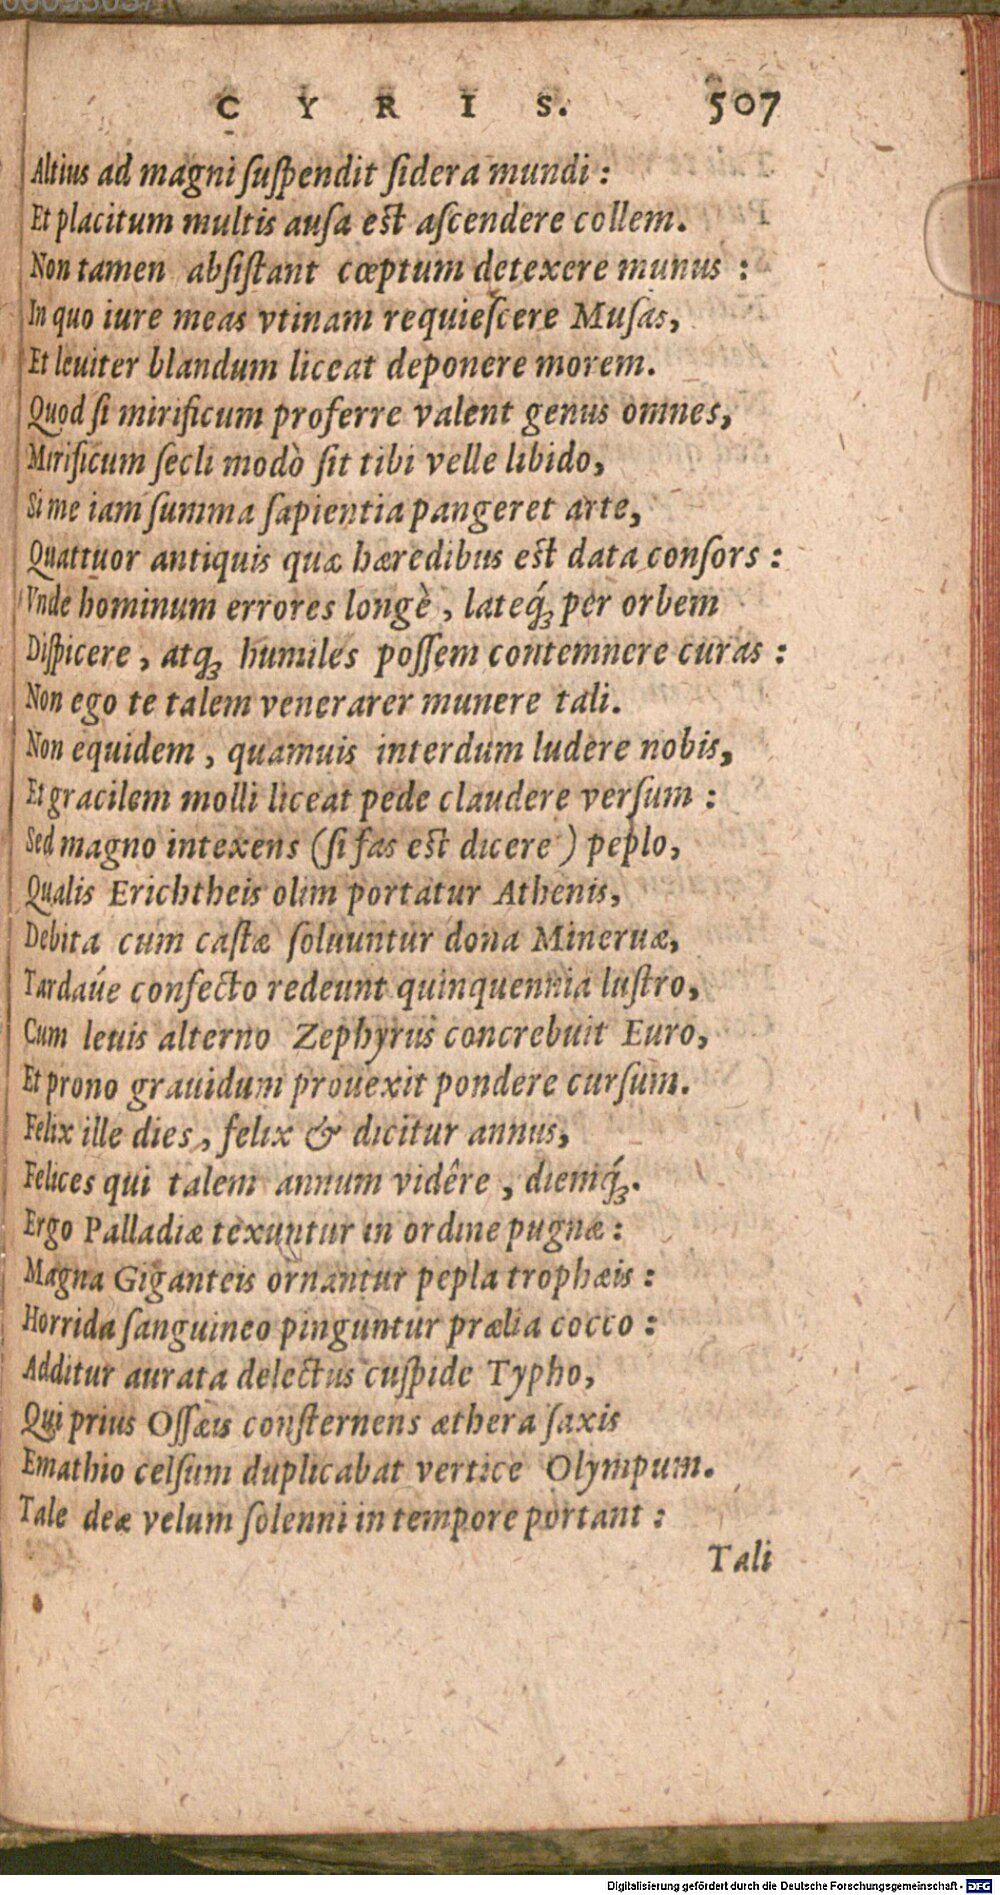 C Y R I S. 507
Altius ad magni ſuſpendit ſidera mundi :
Et placitum multis auſa est aſcendere collem.
Non tamen abſiſtant cœptum detexere munus :
In quo iure meas vtinam requieſcere Muſas,
Et leuiter blandum liceat deponere morem.
Quod ſi mirificum proferre valent genus omnes,
Mirificum ſecli modò ſit tibi velle libido,
Si me iam ſumma ſapientia pangeret arte,
Quattuor antiquis quæ hæredibus est data conſors :
Vnde hominum errores longè , lateq́ꝫ per orbem
Diſpicere , atqꝫ humiles poſſem contemnere curas :
Non ego te talem venerarer munere tali.
Non equidem , quamuis interdum ludere nobis,
Et gracilem molli liceat pede claudere verſum :
Sed magno intexens (ſi fas est dicere ) peplo,
Qualis Erichtheis olim portatur Athenis,
Debita cum caſtæ ſoluuntur dona Mineruæ,
Tardaúe confecto redeunt quinquennia luſtro,
Cum leuis alterno Zephyrus concrebuit Euro,
Et prono grauidum prouexit pondere curſum.
Felix ille dies, felix & dicitur annus,
Felices qui talem annum vidêre , diemq́ꝫ.
Ergo Palladiæ texuntur in ordine pugnæ :
Magna Giganteis ornantur pepla trophæis :
Horrida ſanguineo pinguntur prælia cocco :
Additur aurata delectus cuſpide Typho,
Qui prius Oſſæis conſternens æthera ſaxis
Emathio celſum duplicabat vertice Olympum.
Tale deæ velum ſolenni in tempore portant :
Tali
Digitalisierung gefördert durch die Deutsche Forschungsgemeinschaft - DFG